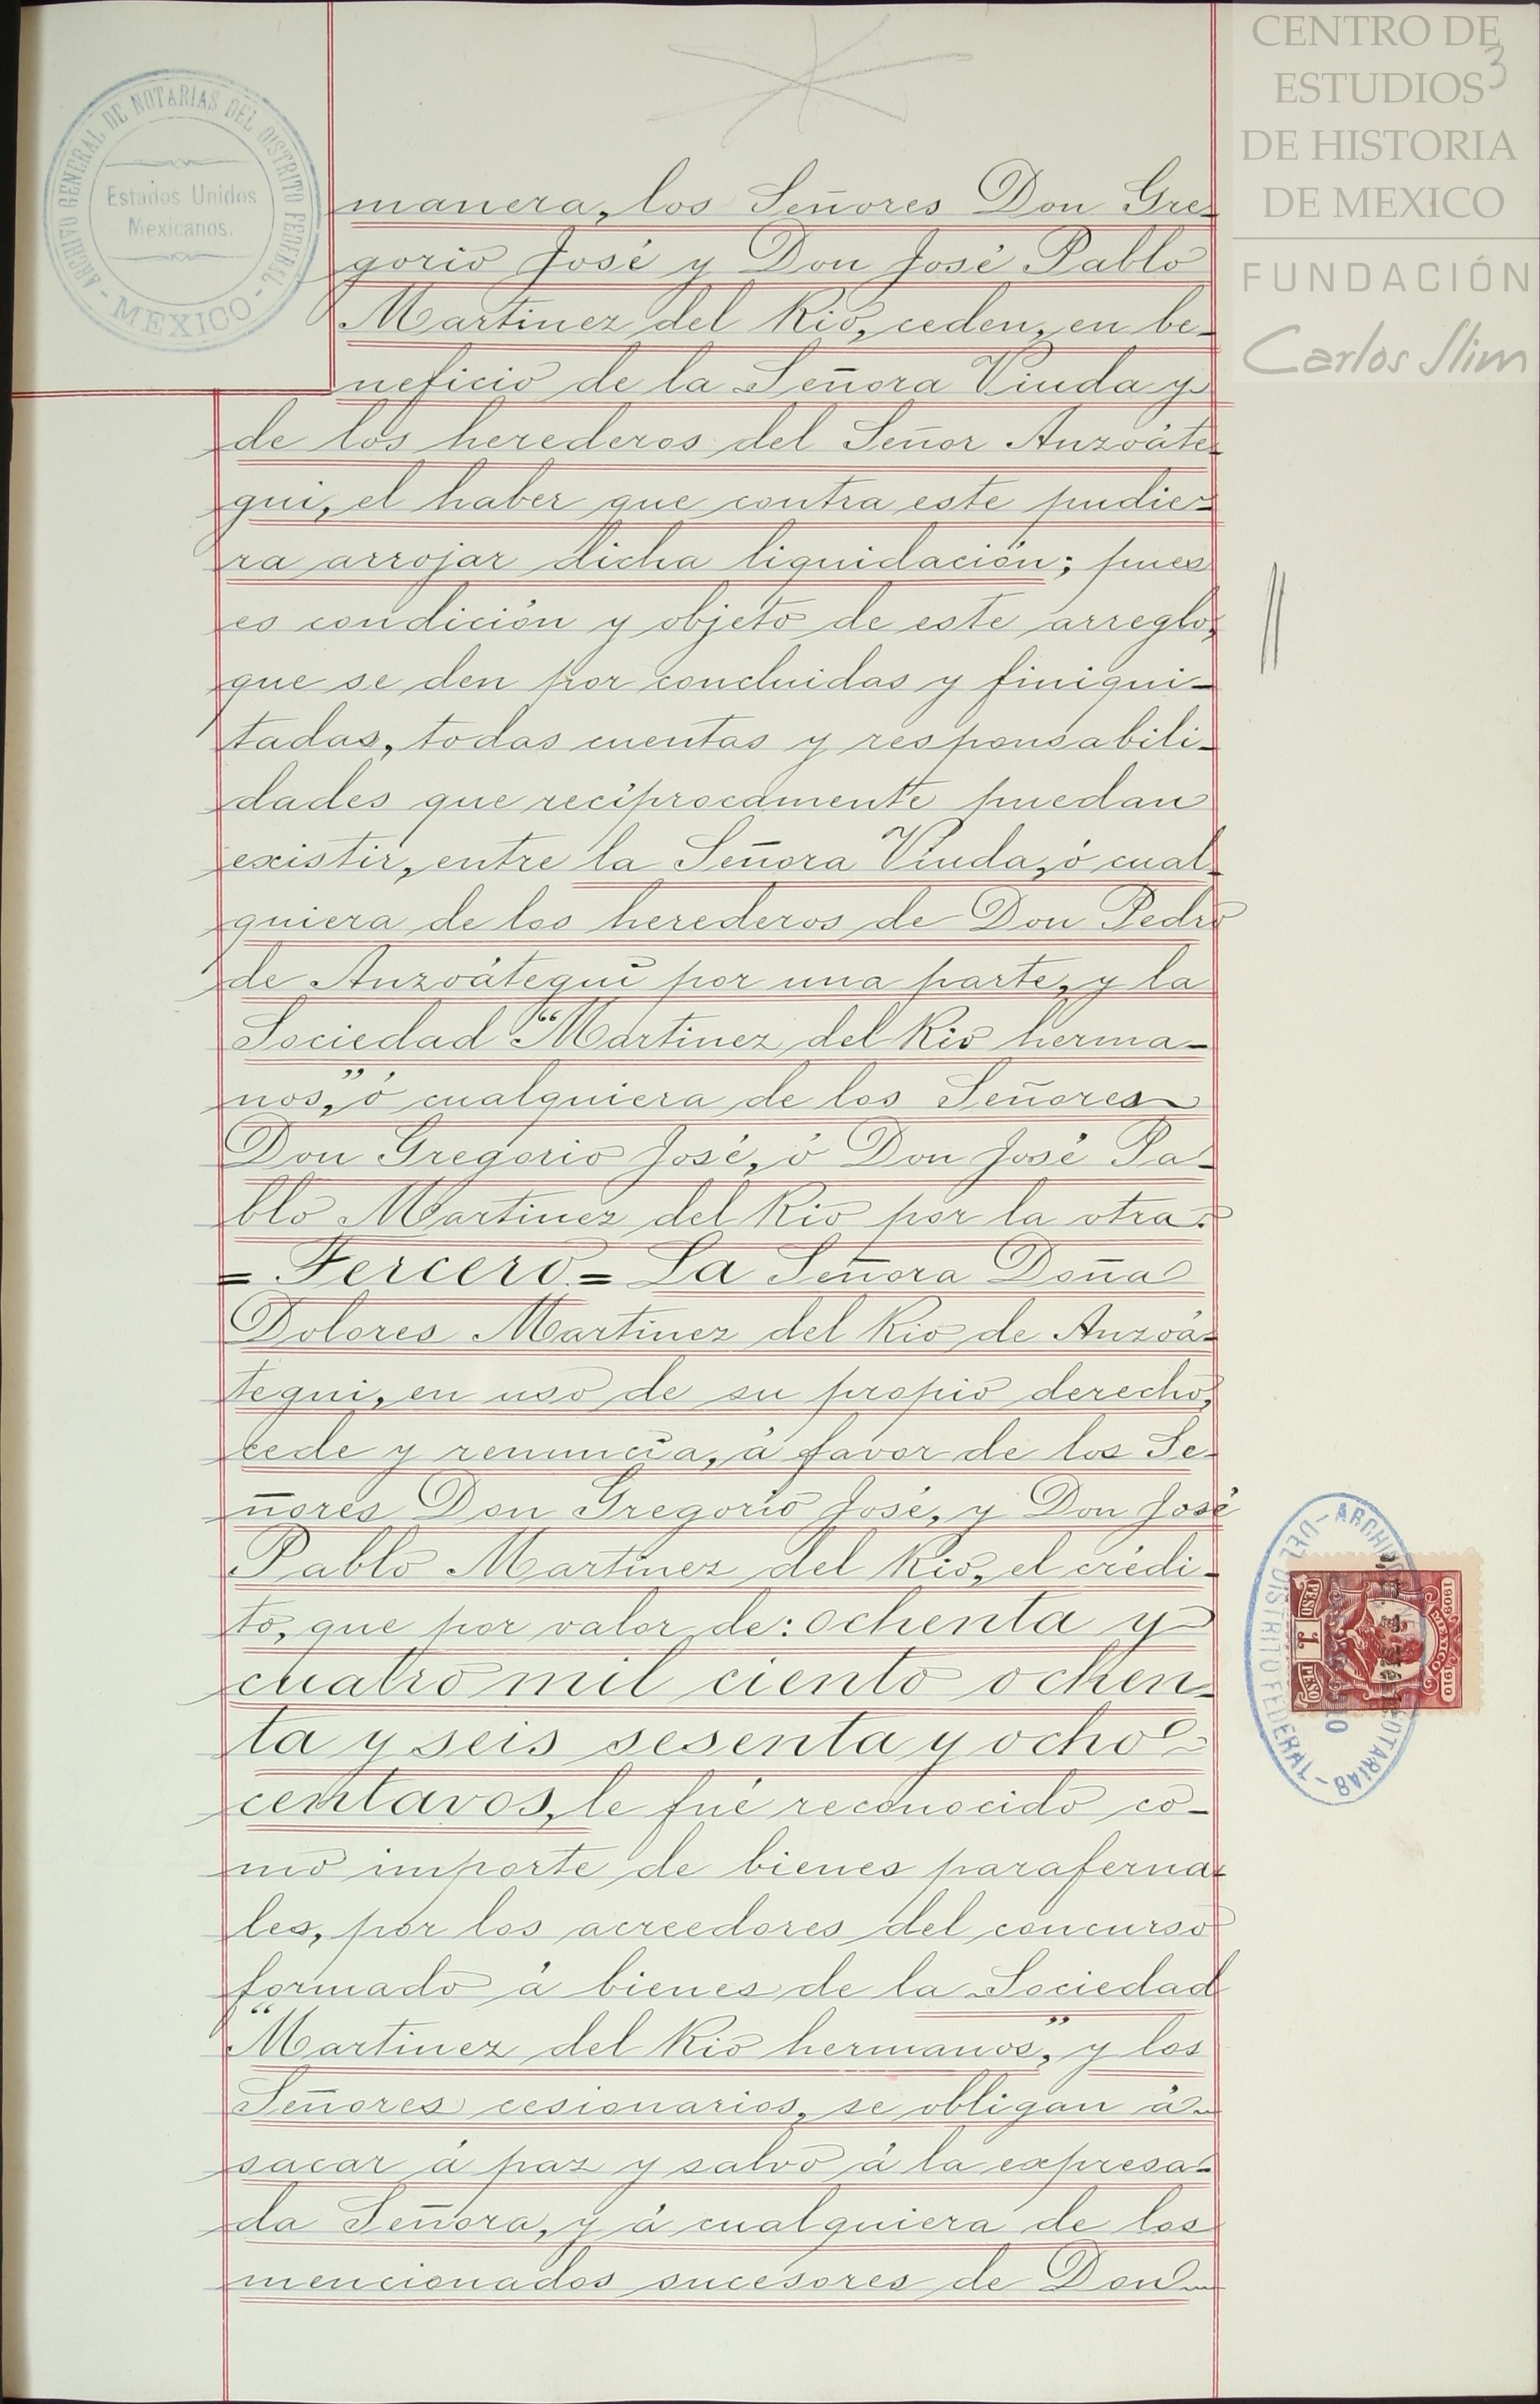 CENTRO DE
ESTUDIOS
DE HISTORIA
DE MEXICO
FUNDACIÓN
Carlos Slim
3
ARCHIVO GENERAL DE NOTARIAS DEL DISTRITO FEDERAL.
- MEXICO -
Estados Unidos
Mexicanos.
manera, los Señores Don Gre-
gorio José y Don José Pablo
Martinez del Rio, ceden, en be-
neficio de la Señora Viuda y
de los herederos del Señor Anzoáte-
gui, el haber que contra este pudie-
ra arrojar dicha liquidación; pues
es condición y objeto de este arreglo,
que se den por concluidas y finiqui-
tadas, todas cuentas y responsabili-
dades que recíprocamente puedan
existir, entre la Señora Viuda, ó cual-
quiera de los herederos de Don Pedro
de Anzoátegui por una parte, y la
Sociedad "Martinez del Rio herma-
nos," ó cualquiera de los Señores
Don Gregorio José, ó Don José Pa-
blo Martinez del Rio por la otra.
= Tercero = La Señora Doña
Dolores Martinez del Rio de Anzoá-
tegui, en uso de su propio derecho,
cede y renuncia, á favor de los Se-
ñores Don Gregorio José, y Don José
Pablo Martinez del Rio, el crédi-
to, que por valor de: ochenta y
cuatro mil ciento ochen-
ta y seis sesenta y ocho
centavos, le fué reconocido co-
mo importe de bienes paraferna-
les, por los acreedores del concurso
formado á bienes de la Sociedad
"Martinez del Rio hermanos," y los
Señores cesionarios, se obligan á
sacar á paz y salvo á la expresa-
da Señora, y á cualquiera de los
mencionados sucesores de Don
ARCHIVO NOTARIAS
- DEL DISTRITO FEDERAL -
1909 MEXICO 1910
PESO 1 PESO